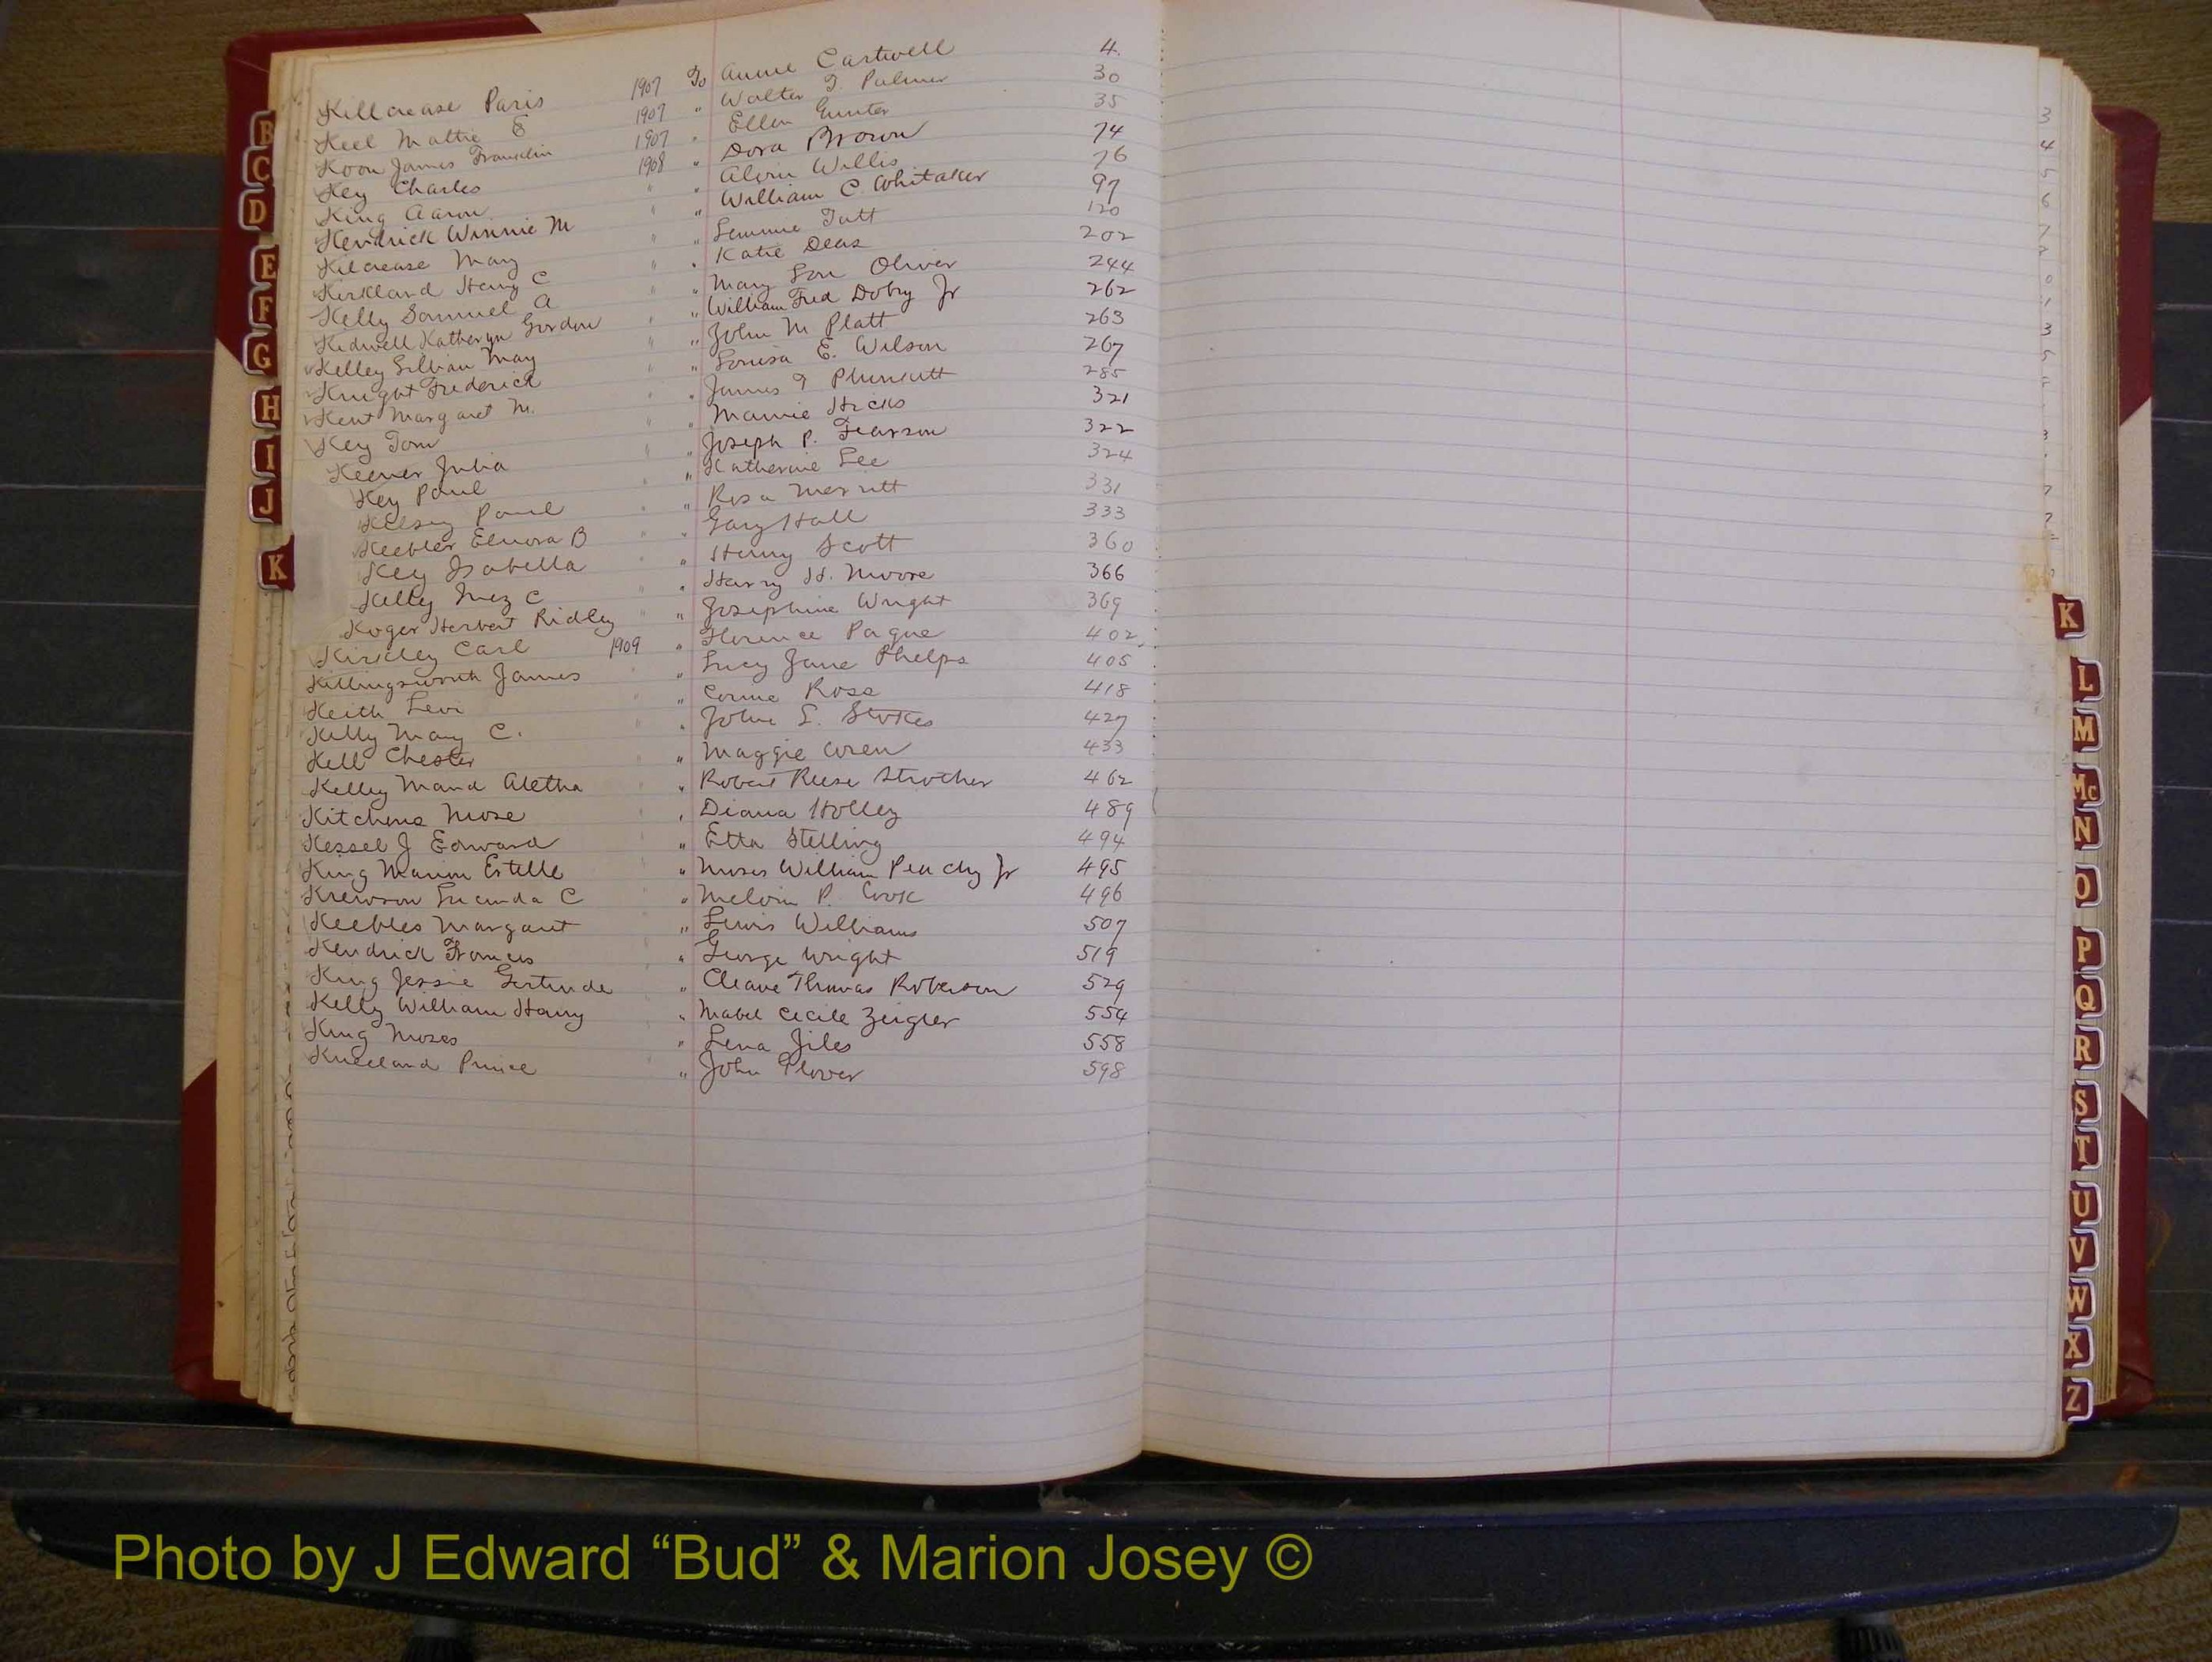 Killcrease Paris 1907 To Annie Cartwell 4.
Keel Mattie E 1907 " Walter T. Palmer 30
Koon James Franklin 1907 " Ellen Gunter 35
Key Charles 1908 " Dora Brown 74
King Aaron " " Alvin Willis 76
Kendrick Winnie M " " William C. Whitaker 97
Kilcrease Mary " " Lemmie Tutt 120
Kirkland Henry C " " Katie Deas 202
Kelly Samuel A " " Mary Lou Oliver 244
Kidwell Katheryn Gordon " " William Fred Dobey Jr 262
Kelley Lillian May " " John M Platt 263
Knight Frederick " " Louisa E. Wilson 267
Kent Margaret M. " " James T 285
Key Tom " " Mamie Hicks 321
Keener Julia " " Joseph P. 322
Key Paul " " Katherine Lee 324
Kelsey Paul " " Rosa Merritt 331
Keebler Elnora B " " Gary Hall 333
Key Isabella " " Henry Scott 360
Kelly Inez C " " Harry H. Moore 366
Koger Herbert Ridley " " Josephine Wright 369
Kirkley Carl 1909 " Florence Pague 402
Killingsworth James " " Lucy Jane Phelps 405
Keith Levi " " Corrie Ross 418
Kelly Mary C. " " John L. Stokes 427
Kell Chester " " Maggie Wren 433
Kelley Maud Aletha " " Robert Reese Strother 462
Kitchens Mose " " Diana Holley 489
Kessel J Edward " " Etta Stelling 494
King Marion Estelle " " Moses William Peachy Jr 495
Krewson Lucinda C " " Melvin P. Cook 496
Keebles Margaret " " Lewis Williams 507
Kendrick Frances " " George Wright 519
King Jessie Gertrude " " Cleave Thomas Roberson 529
Kelly William Henry " " Mabel Cecile Zeigler 554
King Moses " " Lena Jiles 558
Kneeland Prince " " John Plover 598
B
C
D
E
F
G
H
I
J
K
K
L
M
Mc
N
O
P
Q
R
S
T
U
V
W
X
Z
Photo by J Edward “Bud” & Marion Josey ©